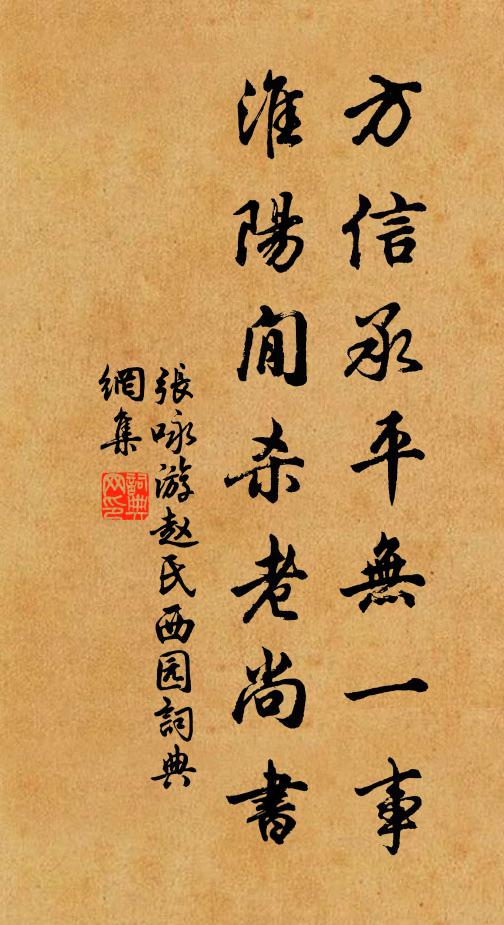 方信承平無一事
淮陽閒杀老尚書
張咏游赵氏西园詞典
網集
詞典
网印